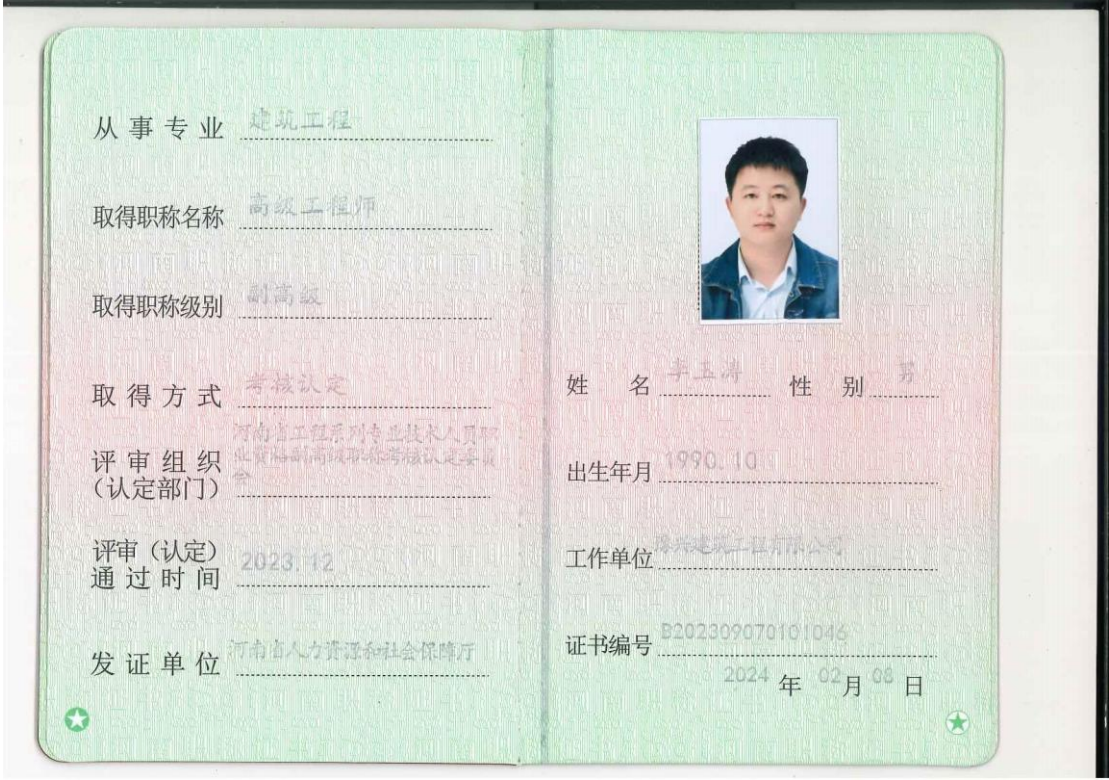 从事专业 建筑工程
取得职称名称 高级工程师
取得职称级别 副高级
取得方式 考核认定
评审组织
（认定部门）
河南省工程系列专业技术人员职
业资格副高级职称考核认定委员
会
评审（认定）
通过时间 2023.12
发证单位 河南省人力资源和社会保障厅
姓名 李玉涛 性别 男
出生年月 1990.10
工作单位 豫兴建筑工程有限公司
证书编号 B202309070101046
2024 年 02 月 08 日